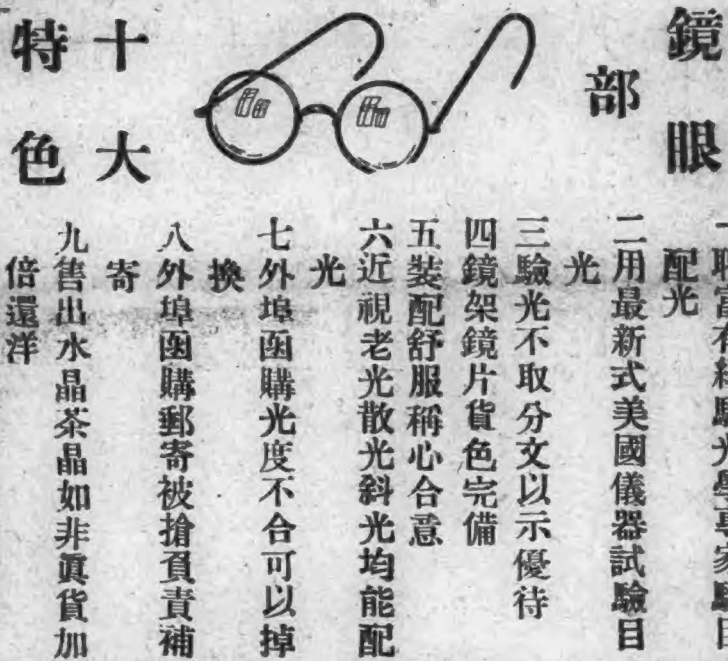 鏡眼
部
一聘富有經驗光學專家驗目
配光
二用最新式美國儀器試驗目
光
三驗光不取分文以示優待
四鏡架鏡片貨色完備
五裝配舒服稱心合意
六近視老光散光斜光均能配
光
七外埠函購光度不合可以掉
換
八外埠函購郵寄被搶負責補
寄
九售出水晶茶晶如非眞貨加
倍還洋
十大
特色